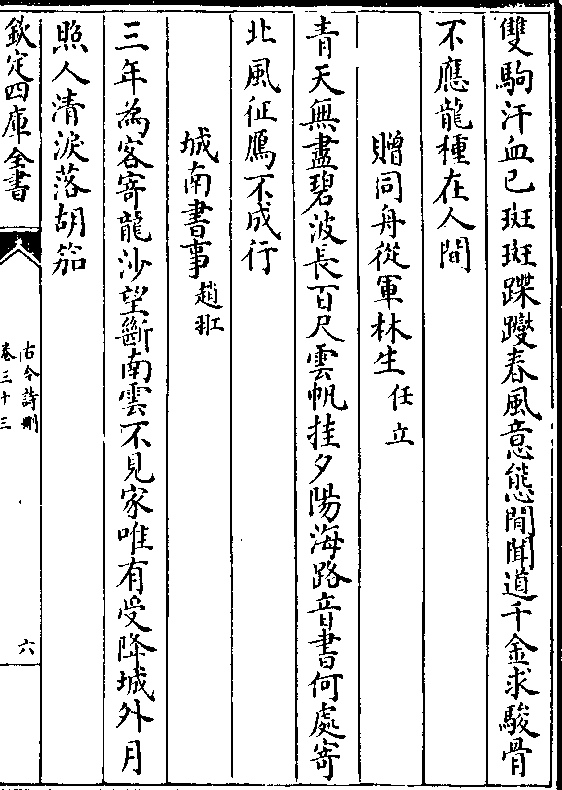 雙駒汗血已斑斑蹀躞春風意態間聞道千金求駿骨
不應龍種在人間
贈同舟從軍林生 任立
青天無盡碧波長百尺雲帆挂夕陽海路音書何處寄
北風征鴈不成行
城南書事 趙羾
三年為客寄龍沙望斷南雲不見家唯有受降城外月
照人清淚落胡笳
欽定四庫全書
古今詩刪
卷三十三
六